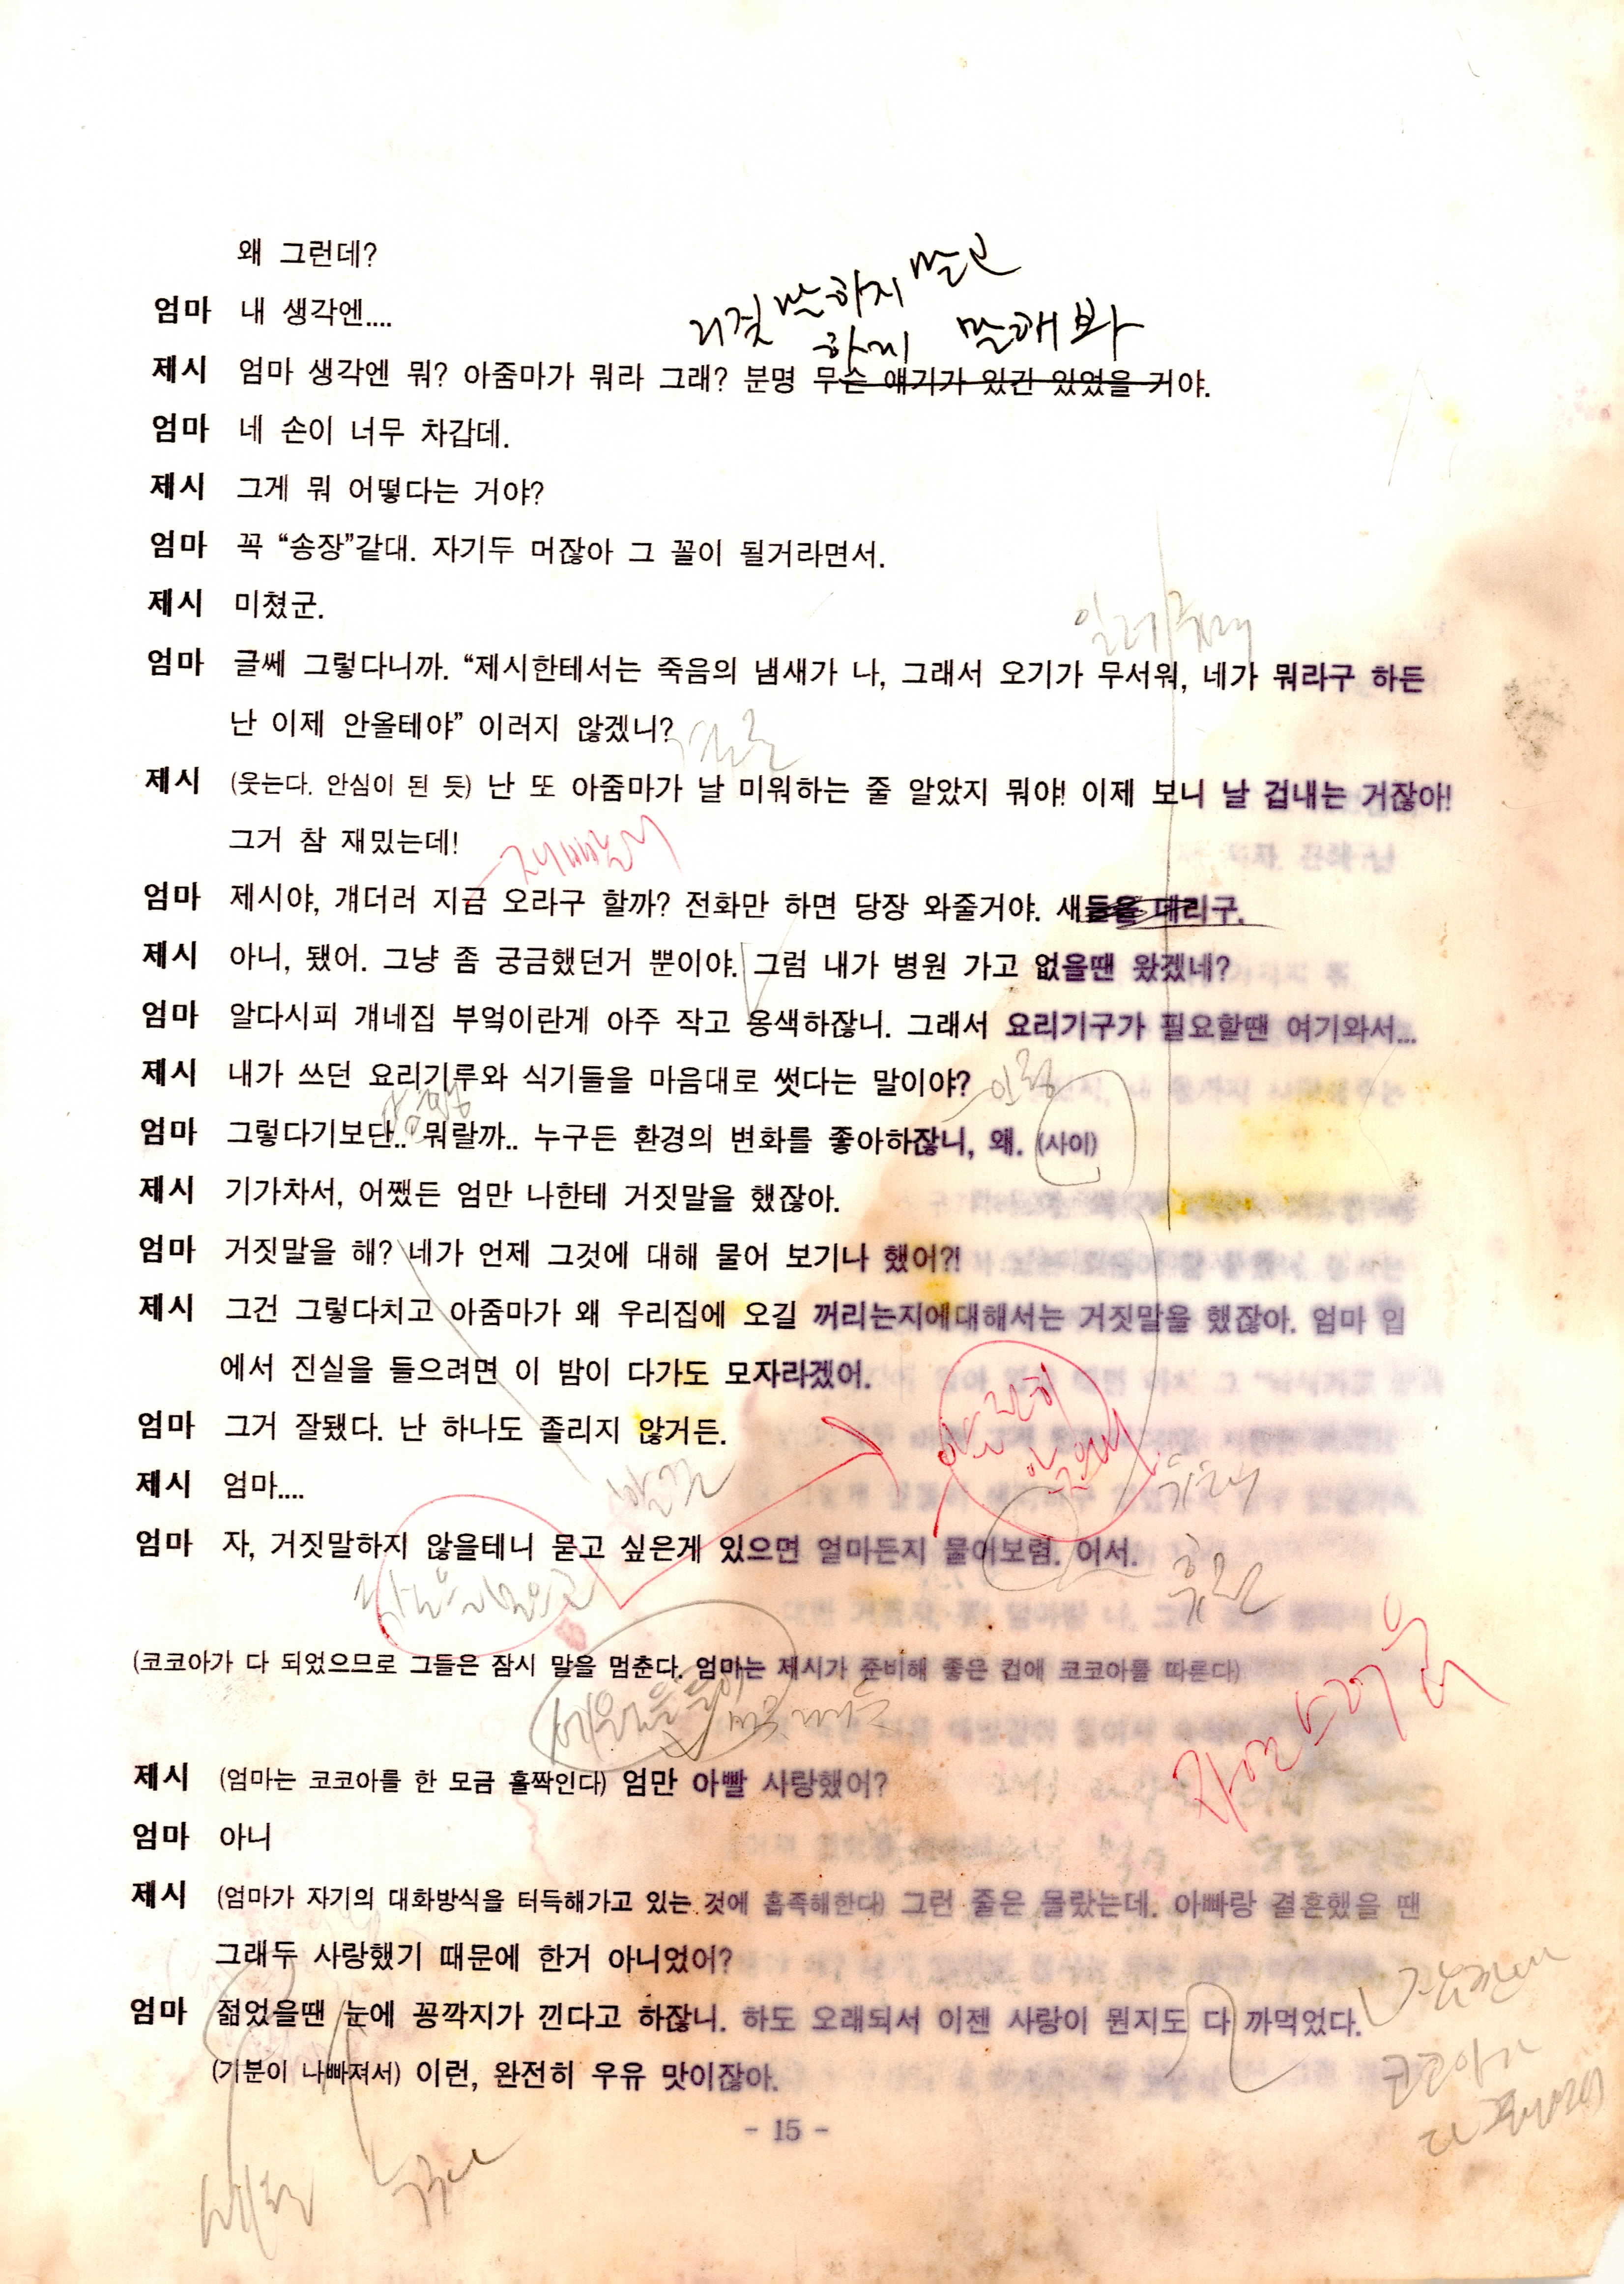 왜 그런데?
엄마 내 생각엔....
말하지 말고
말해봐
제시 엄마 생각엔 뭐? 아줌마가 뭐라 그래? 분명 무슨 얘기가 있긴 있었을 거야.
엄마 네 손이 너무 차갑데.
제시 그게 뭐 어떻다는 거야?
엄마 꼭 “송장”같대. 자기두 머잖아 그 꼴이 될거라면서.
제시 미쳤군.
엄마 글쎄 그렇다니까. “제시한테서는 죽음의 냄새가 나, 그래서 오기가 무서워, 네가 뭐라구 하든
난 이제 안올테야” 이러지 않겠니?
제시 (웃는다. 안심이 된 듯) 난 또 아줌마가 날 미워하는 줄 알았지 뭐야! 이제 보니 날 겁내는 거잖아!
그거 참 재밌는데!
엄마 제시야, 걔더러 지금 오라구 할까? 전화만 하면 당장 와줄거야. 새들을 데리구.
제시 아니, 됐어. 그냥 좀 궁금했던거 뿐이야. 그럼 내가 병원 가고 없을땐 왔겠네?
엄마 알다시피 걔네집 부엌이란게 아주 작고 옹색하잖니. 그래서 요리기구가 필요할땐 여기와서...
제시 내가 쓰던 요리기루와 식기들을 마음대로 썻다는 말이야?
엄마 그렇다기보단.. 뭐랄까.. 누구든 환경의 변화를 좋아하잖니, 왜. (사이)
제시 기가차서, 어쨌든 엄만 나한테 거짓말을 했잖아.
엄마 거짓말을 해? 네가 언제 그것에 대해 물어 보기나 했어?!
제시 그건 그렇다치고 아줌마가 왜 우리집에 오길 꺼리는지에대해서는 거짓말을 했잖아. 엄마 입
에서 진실을 들으려면 이 밤이 다가도 모자라겠어.
엄마 그거 잘됐다. 난 하나도 졸리지 않거든.
제시 엄마....
엄마 자, 거짓말하지 않을테니 묻고 싶은게 있으면 얼마든지 물어보렴. 어서.
(코코아가 다 되었으므로 그들은 잠시 말을 멈춘다. 엄마는 제시가 준비해 좋은 컵에 코코아를 따른다)
제시 (엄마는 코코아를 한 모금 홀짝인다) 엄만 아빨 사랑했어?
엄마 아니
제시 (엄마가 자기의 대화방식을 터득해가고 있는 것에 흡족해한다) 그런 줄은 몰랐는데. 아빠랑 결혼했을 땐
그래두 사랑했기 때문에 한거 아니었어?
엄마 젊었을땐 눈에 꽁깍지가 낀다고 하잖니. 하도 오래되서 이젠 사랑이 뭔지도 다 까먹었다.
코코아가
(기분이 나빠져서) 이런, 완전히 우유 맛이잖아.
- 15 -